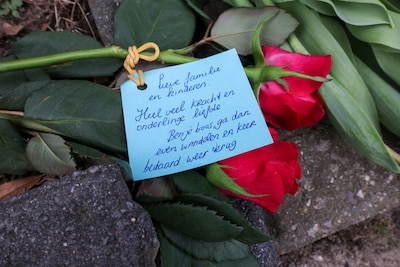 Lieve familie
en kinderen
Heel veel kracht en
onderlinge liefde
Ben je boos, ga dan
even wandelen en keer
bedaard weer terug